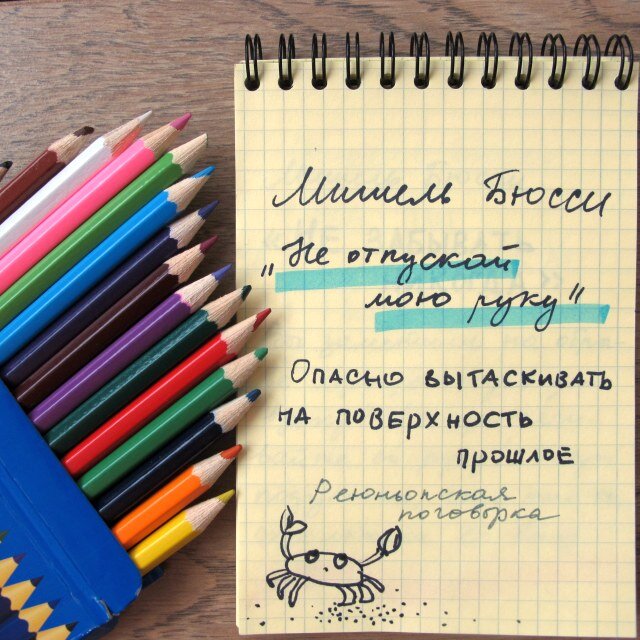 Мишель Бюсси
„Не отпускай
мою руку"
Опасно вытаскивать
на поверхность
прошлое
Реюньонская
поговорка